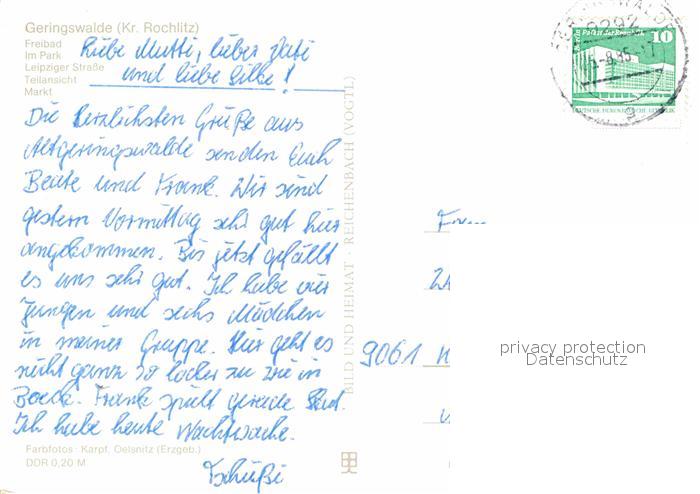 Geringswalde (Kr. Rochlitz)
Freibad
Im Park
Leipziger Straße
Teilansicht
Markt
Liebe Mutti, lieber Vati
und liebe Silke!
Die herzlichsten Grüße aus
Altgeringswalde senden Euch
Beate und Frank. Wir sind
gestern Vormittag sehr gut hier
angekommen. Bis jetzt gefällt
es uns sehr gut. Ich habe vier
Jungen und sechs Mädchen
in meiner Gruppe. Hier geht es
nicht ganz so locker zu wie in
Frank spielt gerade Skat.
Ich habe heute Nachtwache.
Tschüßi
Farbfotos · Karpf, Oelsnitz (Erzgeb.)
DDR 0,20 M
BILD UND HEIMAT · REICHENBACH (VOGTL)
9061
10
Palast der Republik
DEUTSCHE DEMOKRATISCHE REPUBLIK
privacy protection
Datenschutz